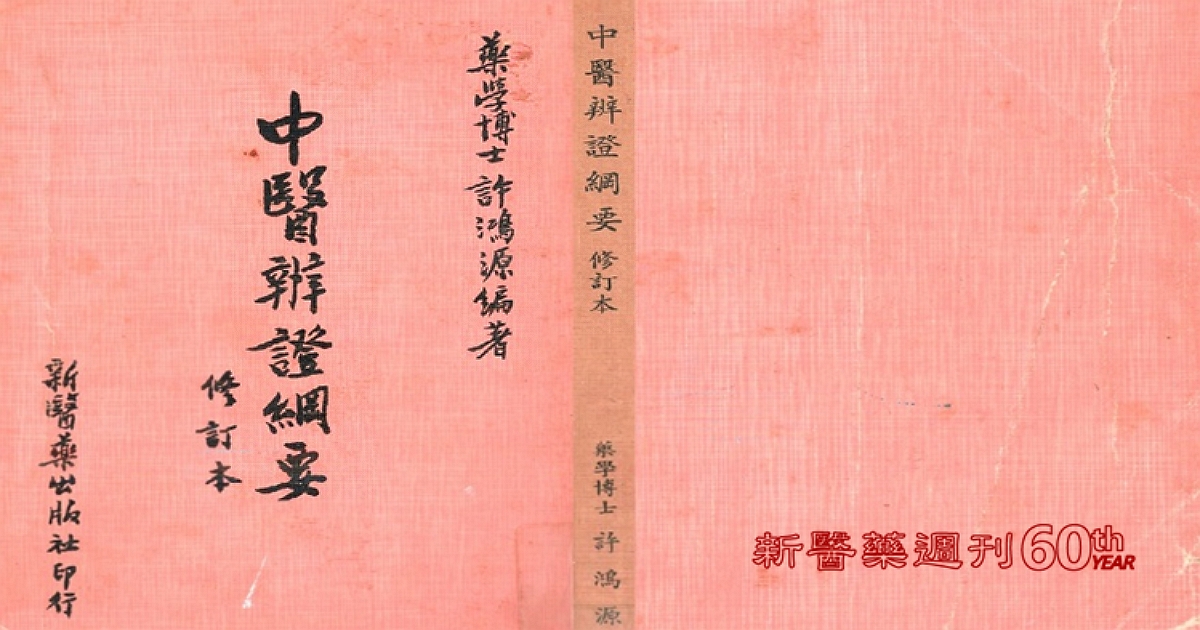 藥學博士 許鴻源編著
中醫辨證綱要
修訂本
新醫藥出版社印行
中醫辨證綱要 修訂本
藥學博士 許鴻源
新醫藥週刊60th YEAR